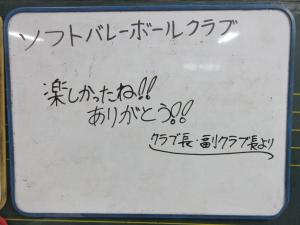 ソフトバレーボールクラブ
楽しかったね!!
ありがとう!!
クラブ長・副クラブ長より